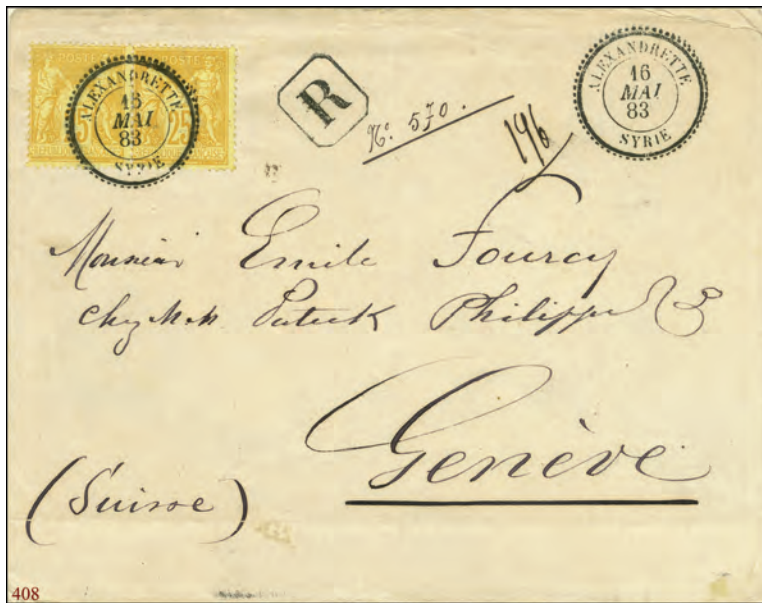 POSTE POSTE
25
ALEXANDRETTE
16
MAI
83
SYRIE
R
No. 570.
196
ALEXANDRETTE
16
MAI
83
SYRIE
Monsieur Emile Fourcy
chez M.M. Pateck Philippe &
Genève
(Suisse)
408